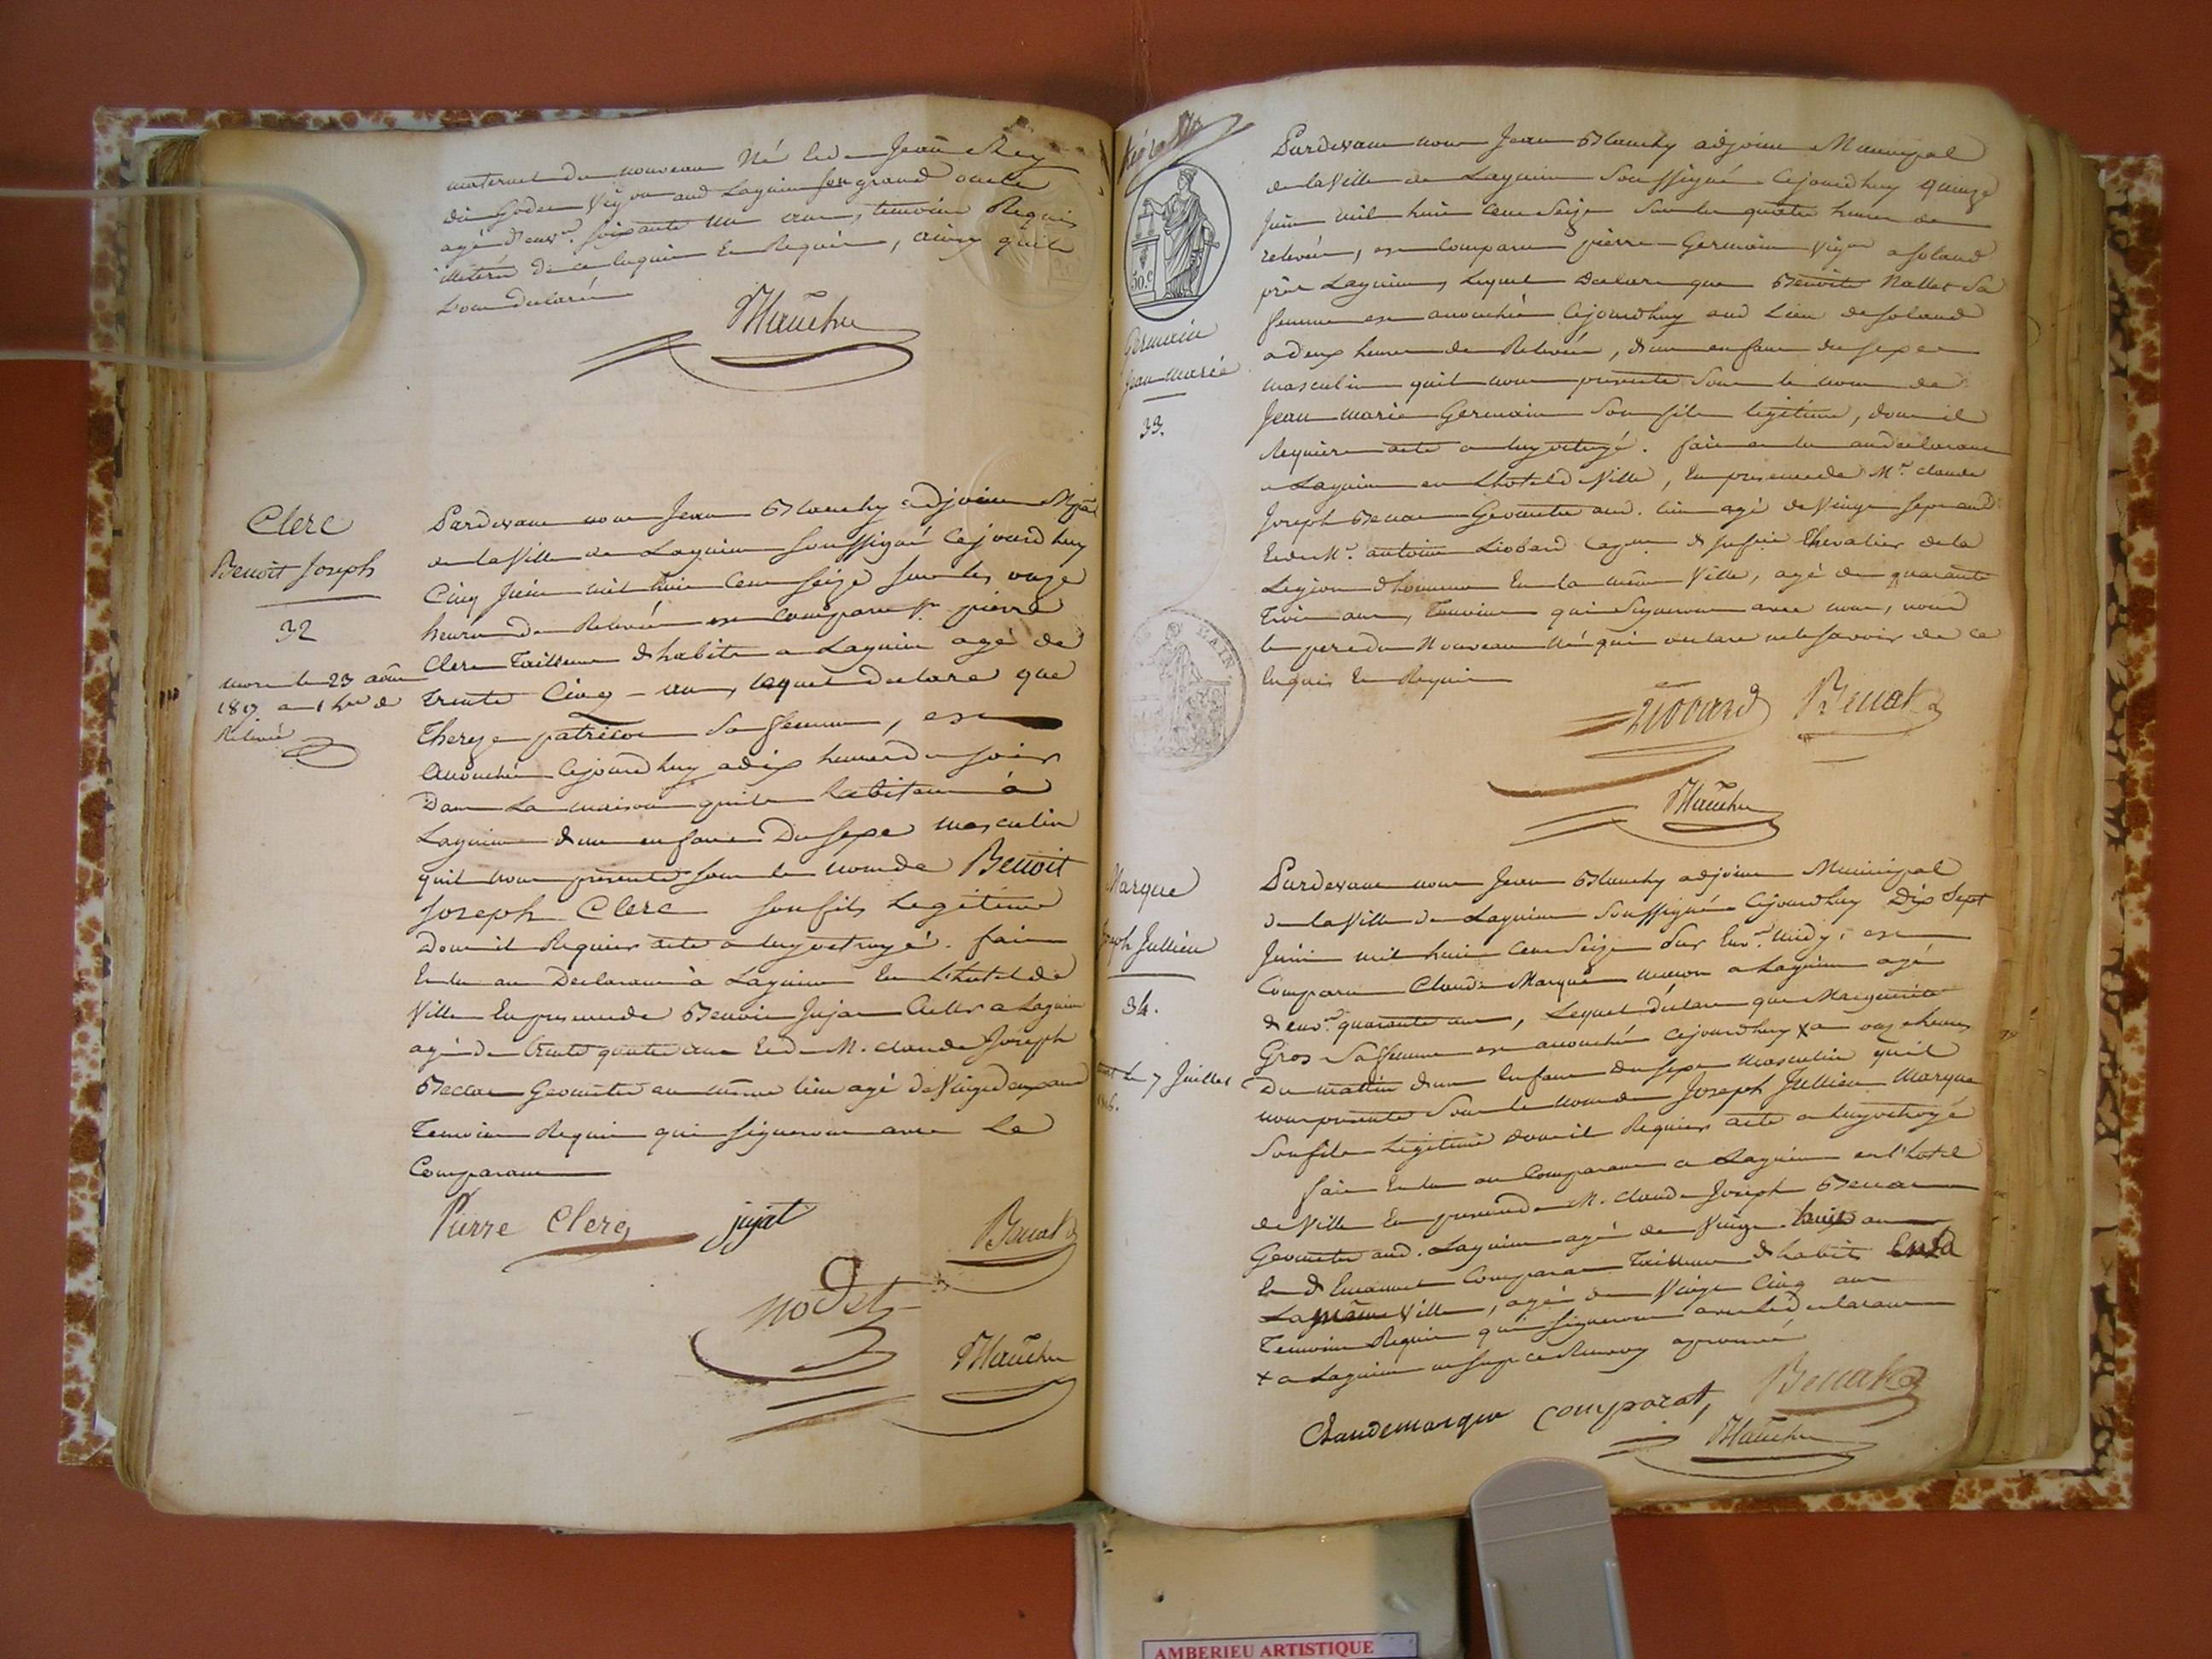 maternel du nouveau Né et de Jean Rey
dit Godet Vigon aud Lagnieu son grand oncle
agé d'envn. soixante un ans, temoins Requis
illiterés de ce enquis et Requis, ainsy qu'ils
L'ont declaré
Blanchy
Clerc
Benoît Joseph
32
mort le 23 aout
1817 a 1 hre de
Relevée
Pardevant nous Jean Blanchy adjoint Mpal
de la Ville de Lagnieu soussigné Cejourdhuy
Cinq Juin mil huit Cent seize sur les onze
heures de Relevée est comparu sr pierre
Clerc Tailleur d'habits a Lagnieu agé de
trente Cinq ans, lequel declare que
Therese patricot sa femme, est
accouchée Cejourdhuy a dix heures du soir
Dans La maison qu'ils habitent à
Lagnieu d'un enfant Du sexe masculin
quil nous présente sous le nom de Benoit
Joseph Clerc son fils Legitime
Dont il Requiert acte a luy octroyé. fait
et lu au Declarant à Lagnieu En L'hotel de
Ville En presence de Benoit Jujat a Lagnieu
agé de trente quatre ans et de M. claude Joseph
Geometre au même lieu agé de Vingt ans
Temoins Requis qui signeront avec Le
Comparant
Pierre Clerc jujat
nodet
Blanchy
50.c
Germain
Jean marie
33.
Pardevant nous Jean Blanchy adjoint Municipal
de la Ville de Lagnieu Soussigné Cejourdhuy quinze
Juin mil huit Cent Seize Sur les quatre heures de
relevée, est Comparu pierre Germain Vign a
près Lagnieu, Lequel Declare que Benoite Nallet Sa
femme est accouchée Cejourdhuy aud Lieu de
a deux heures de Relevée, d'un enfant du sexe
masculin quil nous présente Sous le nom de
Jean marie Germain Son fils légitime, dont il
Requiert acte a luy octroyé. fait et lu au declarant
a Lagnieu en L'hotel de Ville, En presence de Mr. claude
Joseph Geometre aud. lieu agé de Vingt Sept ans
Et de Mr. antoine Liobard Chevalier de la
Legion d'honneur En la même Ville, agé de quarante
Trois ans, Temoins qui Signeront avec nous, nond
le pere du Nouveau Né qui declare ne le Savoir de ce
Enquis Et Requis
Liobard
Blanchy
AIN
Marque
Joseph Jullien
34.
mort le 7 Juillet
1816.
Pardevant nous Jean Blanchy adjoint Municipal
de la Ville de Lagnieu Soussigné Cejourdhuy Dix Sept
Juin mil huit Cent Seize Sur Envn. midy, est
Comparu Claude Marque macon a Lagnieu agé
d'envn. quarante ans, Lequel déclare que Marguerite
Gros Sa femme est accouchée cejourdhuy x a onze heures
Du matin d'un Enfant Du sexe Masculin qu'il
nous presente Sous le nom de Joseph Jullien Marque
Son fils Legitime dont il Requiert acte a luy octroyé
fait et lu au Comparant a Lagnieu en l'hotel
de Ville En presence de M. claude Joseph
Geometre aud. Lagnieu agé de Vingt huit ans
Et d'Emanuel Comparat Tailleur d'habits En
La même Ville, agé de Vingt Cinq ans
Temoins Requis qui Signeront avec le declarant
x a Lagnieu ce Renvoy aprouvé
Claudemarque comparat,
Blanchy
AMBERIEU ARTISTIQUE